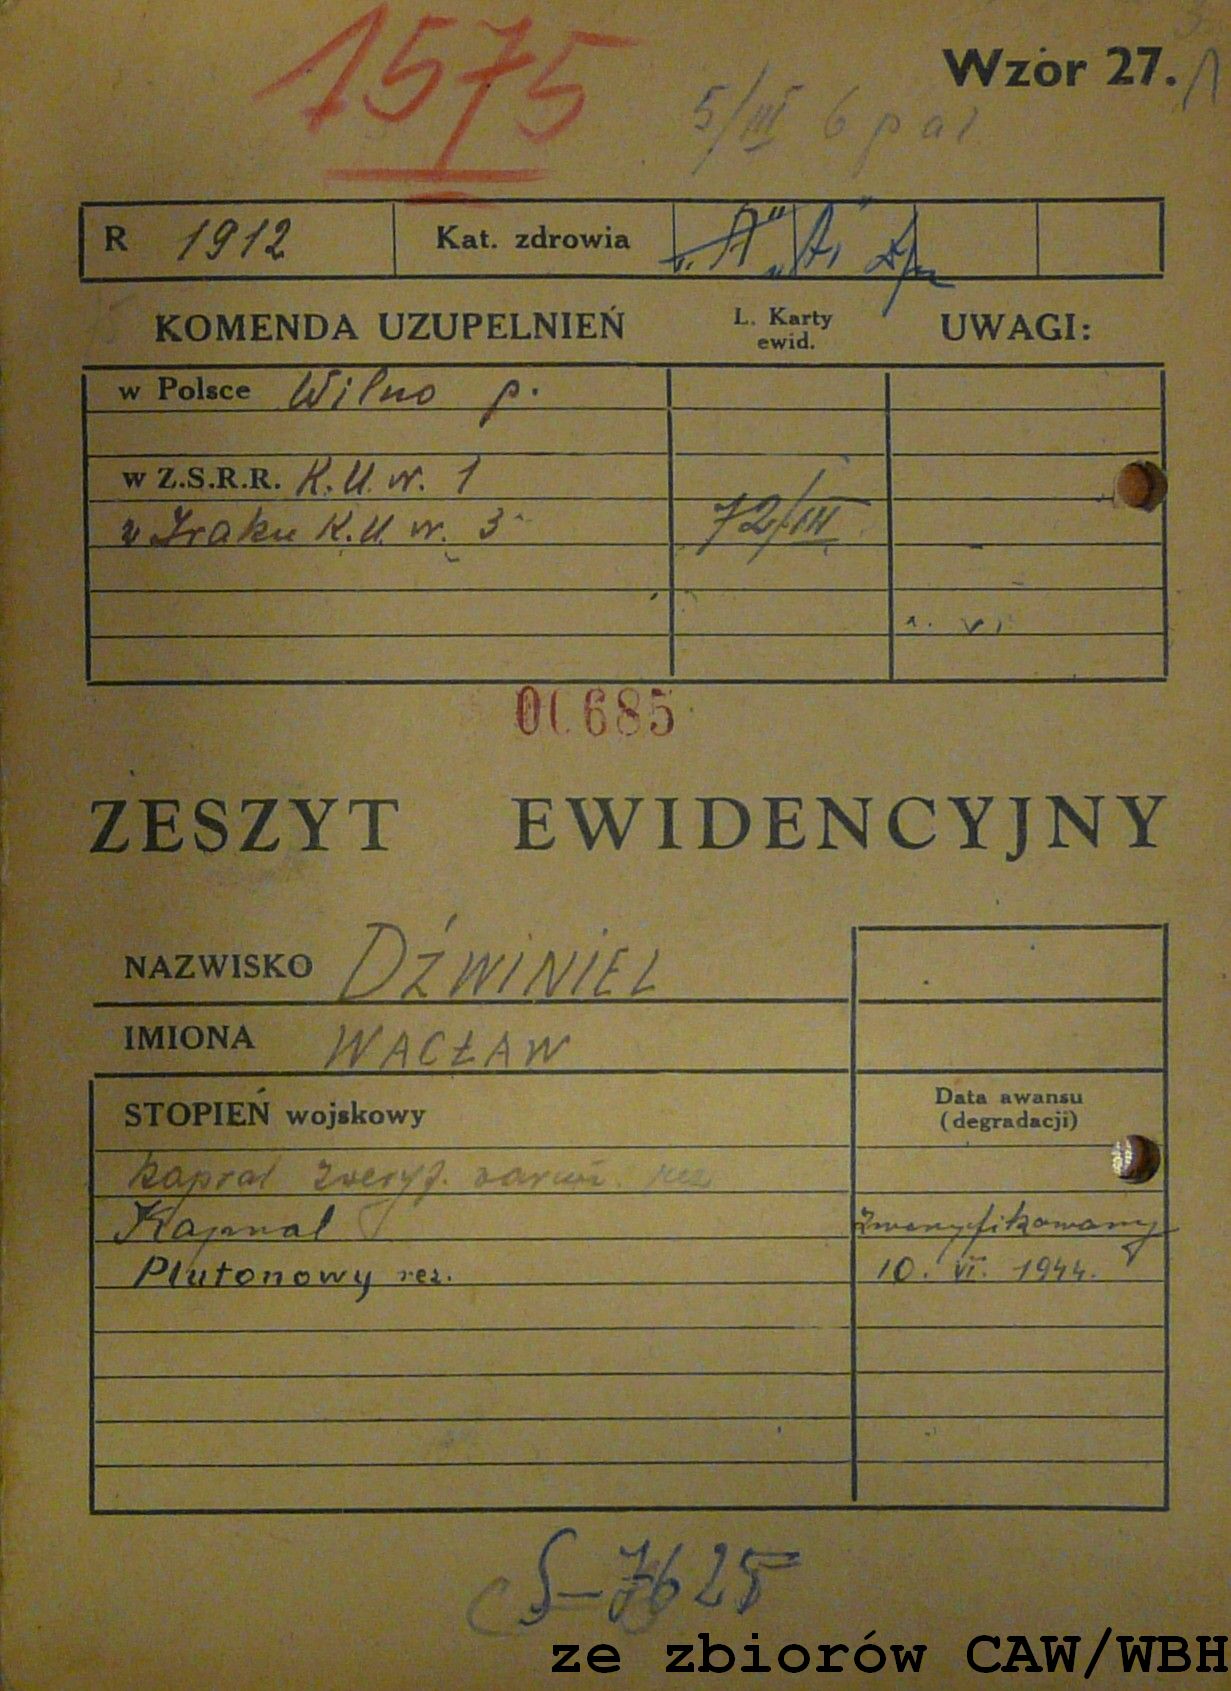 1575
Wzór 27.
5/III 6 pal
R 1912 Kat. zdrowia „A” „A”
KOMENDA UZUPEŁNIEŃ L. Karty ewid. UWAGI:
w Polsce Wilno p.
w Z.S.R.R. K.U. nr. 1
w Iraku K.U. nr. 3 72/III
685
ZESZYT EWIDENCYJNY
NAZWISKO DŹWINIEL
IMIONA WACŁAW
STOPIEŃ wojskowy Data awansu (degradacji)
kapral zweryf. rez.
Kapral zweryfikowany
Plutonowy rez. 10. VI. 1944.
S-7625
ze zbiorów CAW/WBH